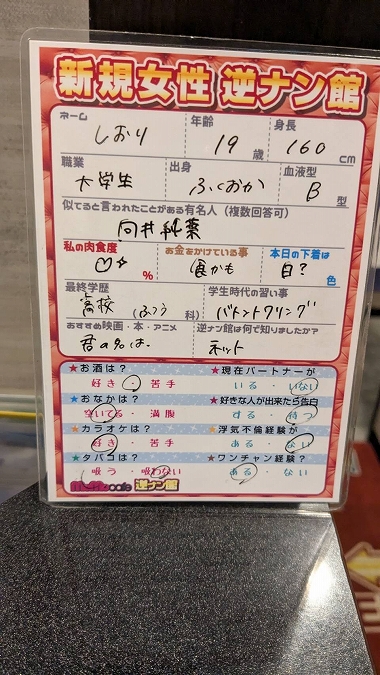 新規女性 逆ナン館
ネーム 年齢 身長
しおり 19歳 160cm
職業 出身 血液型
大学生 ふくおか B型
似てると言われたことがある有名人（複数回答可）
向井純葉
私の肉食度 お金をかけている事 本日の下着は
% 白？色
最終学歴 学生時代の習い事
高校（ふつう科） バトントワリング
おすすめ映画・本・アニメ 逆ナン館は何で知りましたか？
君の名は。 ネット
★お酒は？ ★現在パートナーが
好き・苦手 いる・いない
★おなかは？ ★好きな人が出来たら告白
空いてる・満腹 する・待つ
★カラオケは？ ★浮気不倫経験が
好き・苦手 ある・ない
★タバコは？ ★ワンチャン経験？
吸う・吸わない ある・ない
cafe 逆ナン館